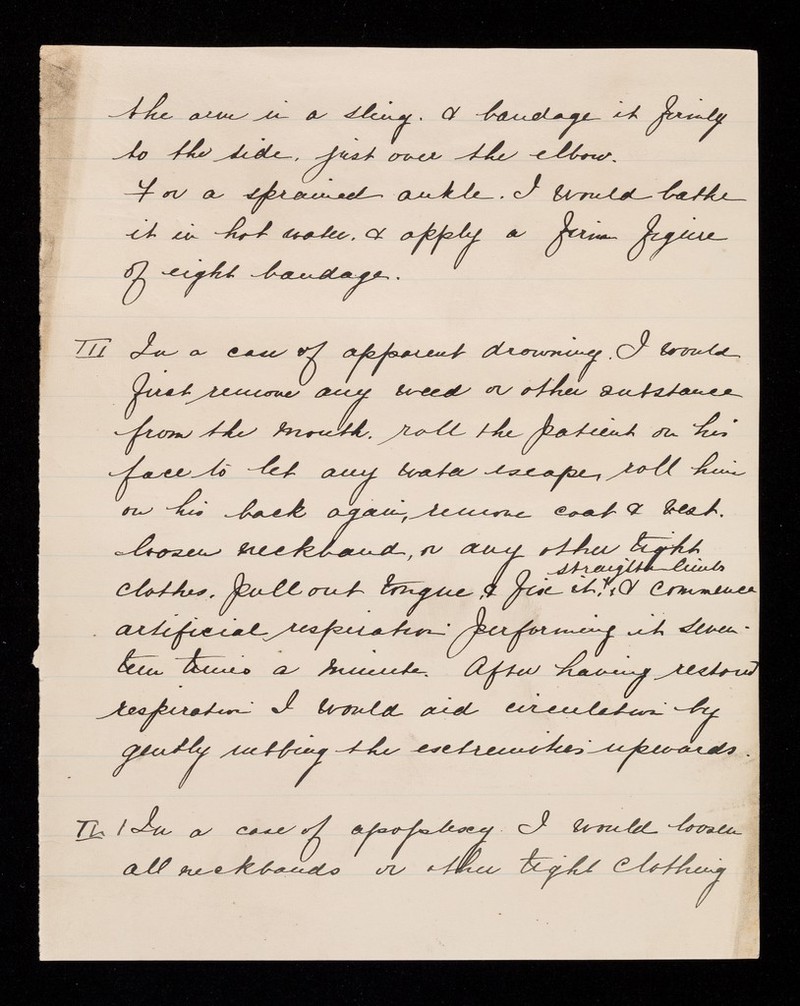 the arm in a sling. & bandage it firmly
to the side, just over the elbow.
For a sprained ankle. I would bathe
it in hot water. & apply a firm figure
of eight bandage.
III In a case of apparent drowning. I would
first remove any weed or other substance
from the mouth. roll the patient on his
face to let any water escape, roll him
on his back again, remove coat & vest.
loosen neckband, or any other tight
straighten limbs
clothes. pull out tongue, & fix it. & commence
artificial respiration performing it seven-
teen times a minute. After having restored
respiration I would aid circulation by
gently rubbing the extremities upwards.
IV. 1 In a case of apoplexy I would loosen
all neckbands or other tight clothing